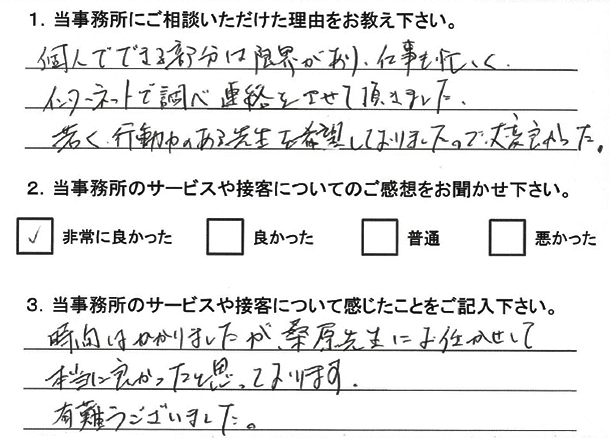 1. 当事務所にご相談いただけた理由をお教え下さい。
個人でできる部分は限界があり、仕事も忙しく、
インターネットで調べ連絡をさせて頂きました。
若く、行動力のある先生を希望しておりましたので、大変良かった。
2. 当事務所のサービスや接客についてのご感想をお聞かせ下さい。
✓ 非常に良かった 良かった 普通 悪かった
3. 当事務所のサービスや接客について感じたことをご記入下さい。
時間はかかりましたが、桑原先生にお任せして
本当に良かったと思っております。
有難うございました。